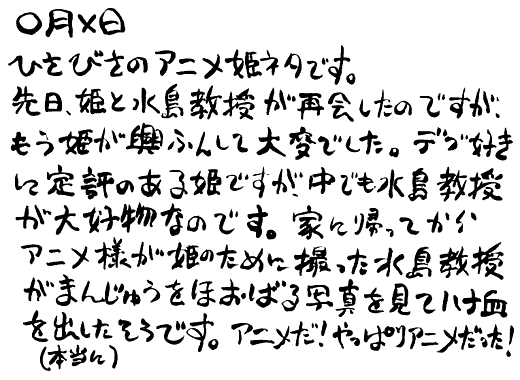 〇月×日
ひさびさのアニメ姫ネタです。
先日、姫と水島教授が再会したのですが、
もう姫が興ふんして大変でした。デブ好き
に定評のある姫ですが、中でも水島教授
が大好物なのです。家に帰ってから
アニメ様が姫のために撮った水島教授
がまんじゅうをほおばる写真を見てハナ血
を出したそうです。アニメだ!やっぱりアニメだった!
(本当に)